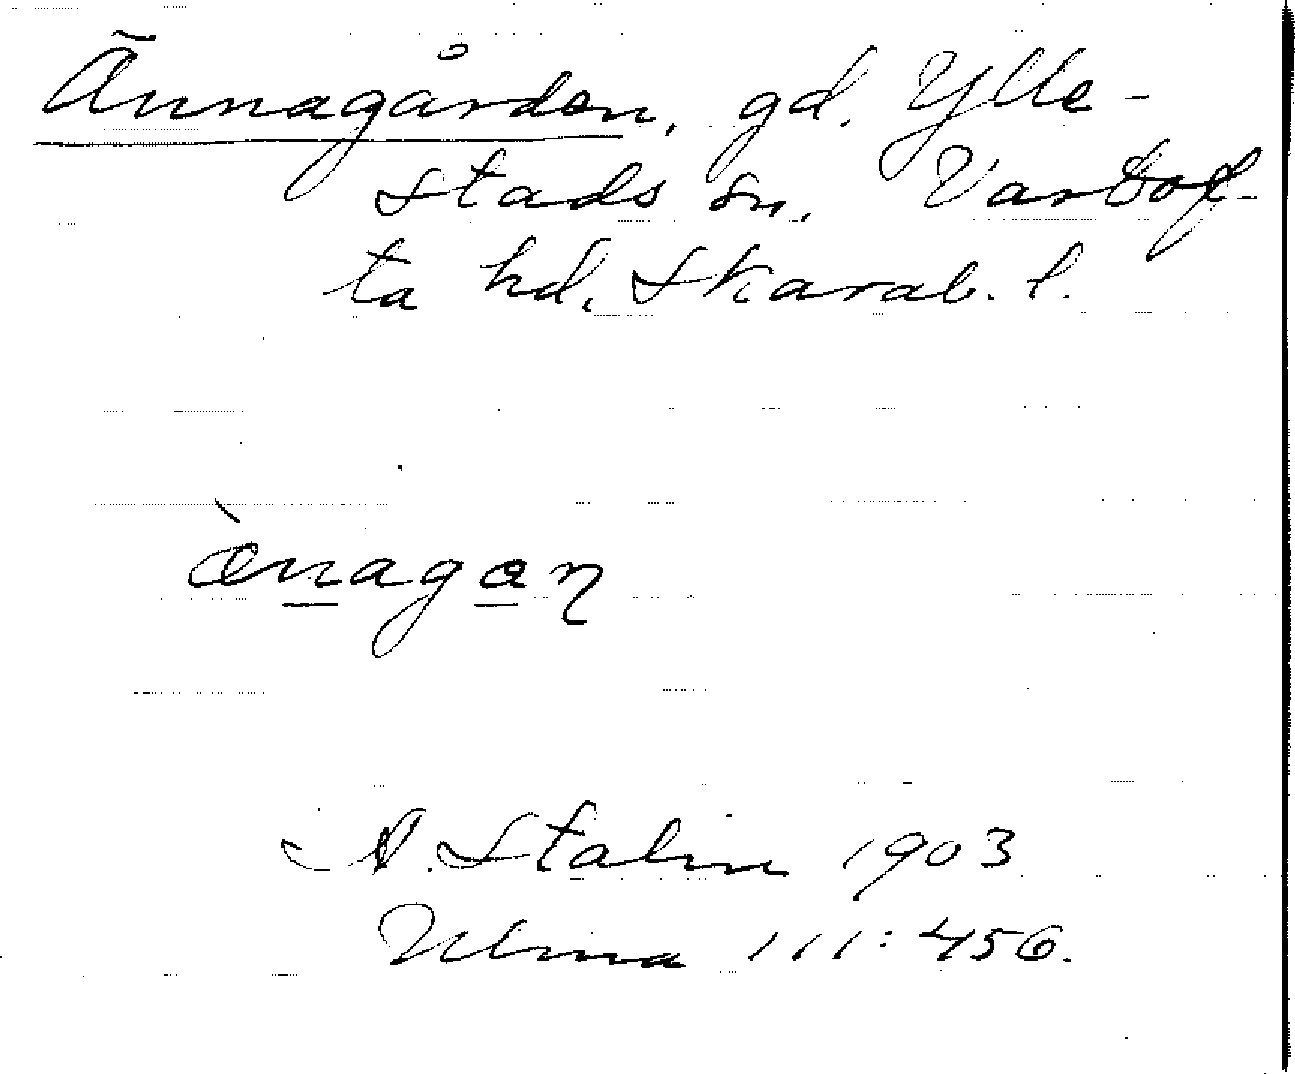 Ännagården, gd. Ylle-
stads sn. Vartof-
ta hd. Skarab. l.
ænagan
A. Stalin 1903
Ulma 111:456.